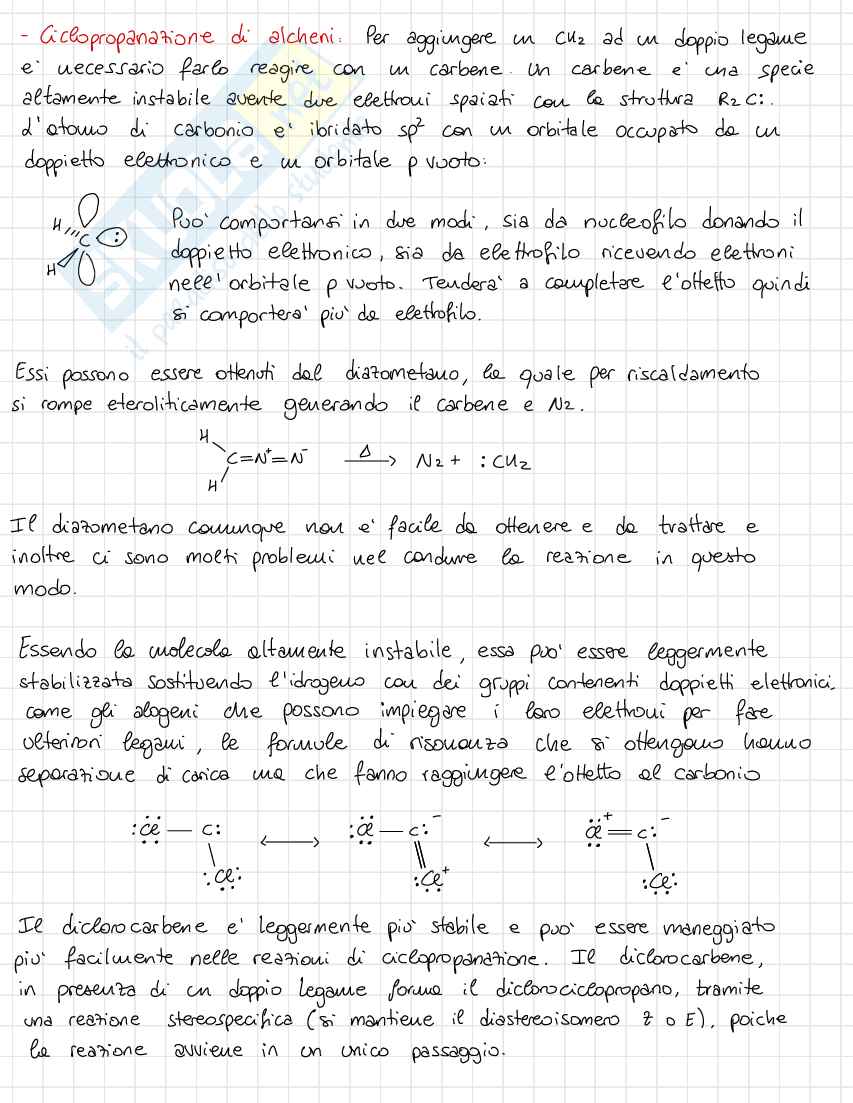 - Ciclopropanazione di alcheni: Per aggiungere un CH2 ad un doppio legame
e' necessario farlo reagire con un carbene. Un carbene e' una specie
altamente instabile avente due elettroni spaiati con la struttura R2C:.
L'atomo di carbonio e' ibridato sp2 con un orbitale occupato da un
doppietto elettronico e un orbitale p vuoto:
H
C :
H
Puo' comportarsi in due modi, sia da nucleofilo donando il
doppietto elettronico, sia da elettrofilo ricevendo elettroni
nell'orbitale p vuoto. Tendera' a completare l'ottetto quindi
si comportera' piu' da elettrofilo.
SKUOLA.net
il paradiso dello studente
Essi possono essere ottenuti dal diazometano, la quale per riscaldamento
si rompe eteroliticamente generando il carbene e N2.
H
C=N+=N- Δ → N2 + :CH2
H
Il diazometano comunque non e' facile da ottenere e da trattare e
inoltre ci sono molti problemi nel condurre la reazione in questo
modo.
Essendo la molecola altamente instabile, essa puo' essere leggermente
stabilizzata sostituendo l'idrogeno con dei gruppi contenenti doppietti elettronici.
come gli alogeni che possono impiegare i loro elettroni per fare
ulteriori legami, le formule di risonanza che si ottengono hanno
separazione di carica ma che fanno raggiungere l'ottetto al carbonio
:Cl — C: ↔ :Cl — C:- ↔ Cl+ = C:-
:Cl: :Cl+ :Cl:
Il diclorocarbene e' leggermente piu' stabile e puo' essere maneggiato
piu' facilmente nelle reazioni di ciclopropanazione. Il diclorocarbene,
in presenza di un doppio legame forma il diclorociclopropano, tramite
una reazione stereospecifica (si mantiene il diastereoisomero Z o E), poiche
la reazione avviene in un unico passaggio.